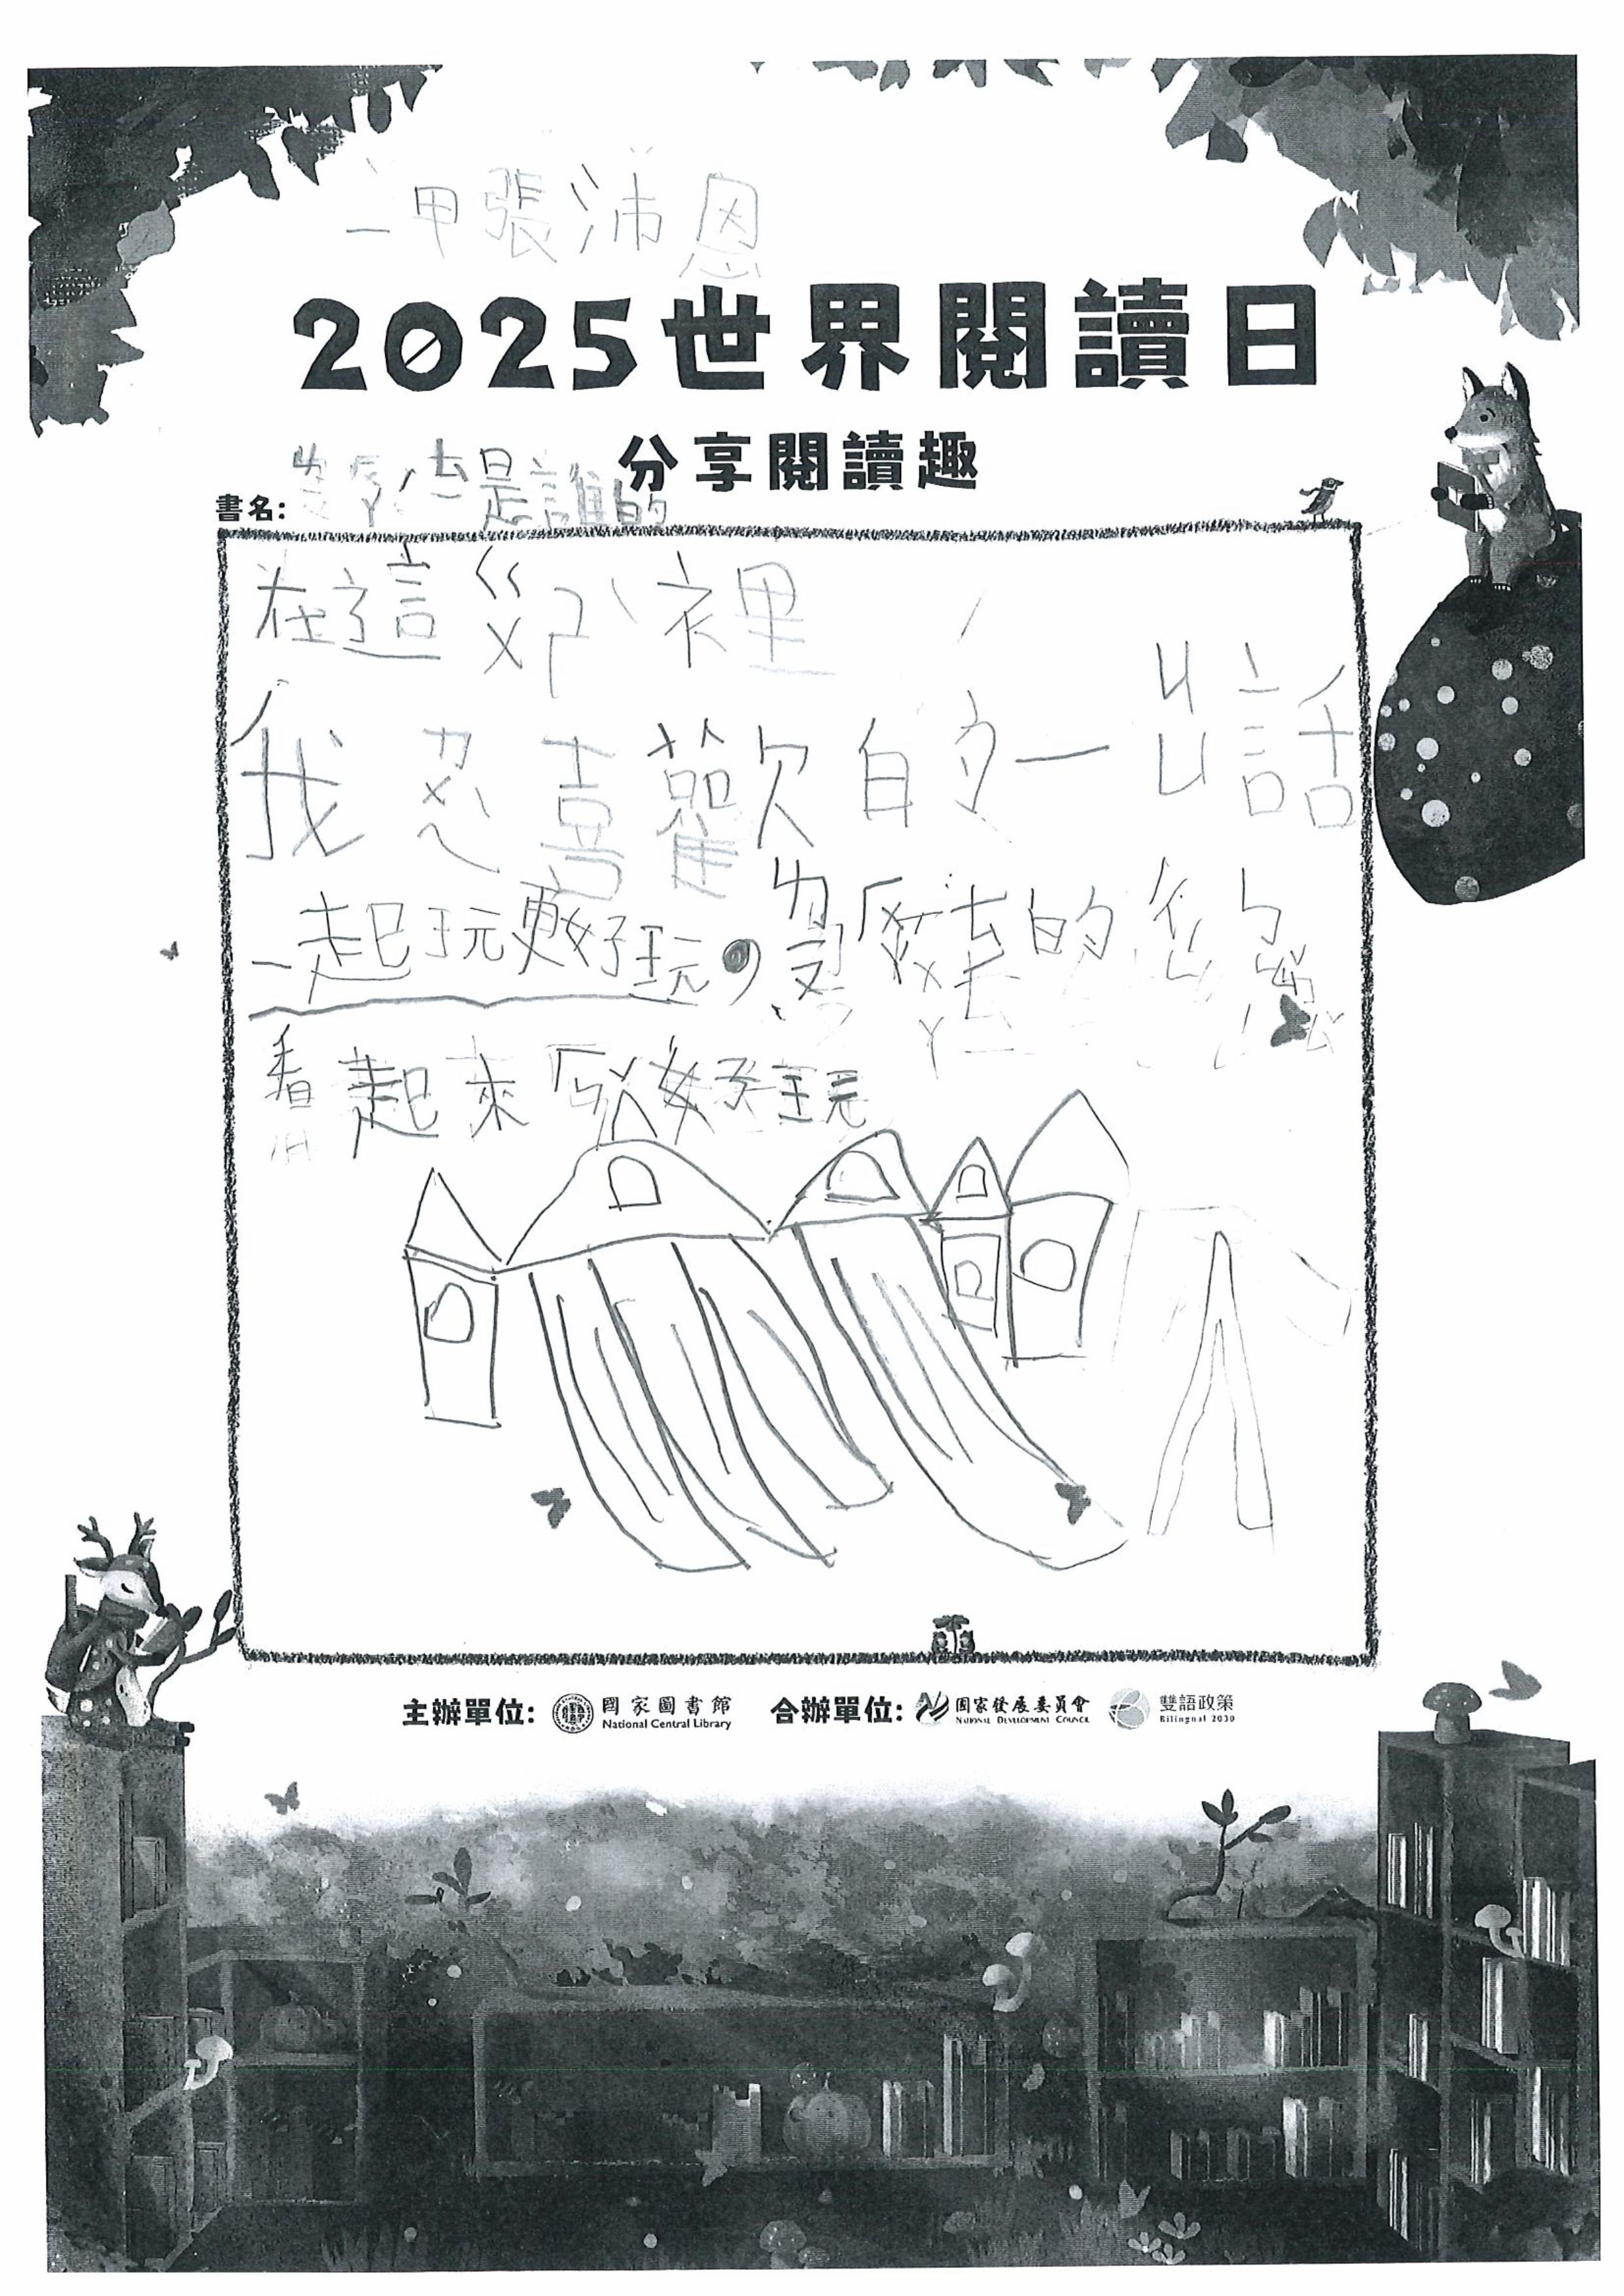 一甲張沛恩
2025世界閱讀日
分享閱讀趣
書名: 是誰的
在這 裡
我 喜歡的一ㄐㄩ話
一起玩更好玩。 的
看起來 好玩
主辦單位: 國家圖書館 National Central Library 合辦單位: 國家發展委員會 National Development Council 雙語政策 Bilingual 2030